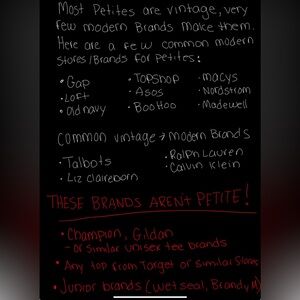 Most Petites are vintage, very
few modern Brands make them.
Here are a few common modern
stores/Brands for petites:
• Gap • TOPSHOP • macys
• LOFT • ASOS • Nordstrom
• old navy • BooHoo • Madewell
Common vintage → modern Brands
• Talbots • Ralph Lauren
• Liz claireborn • Calvin Klein
THESE BRANDS ARENT PETITE!
• Champion, Gildan
- or similar unisex tee brands
• Any top from Target or similar stores
• Junior brands (wetseal, Brandy M)